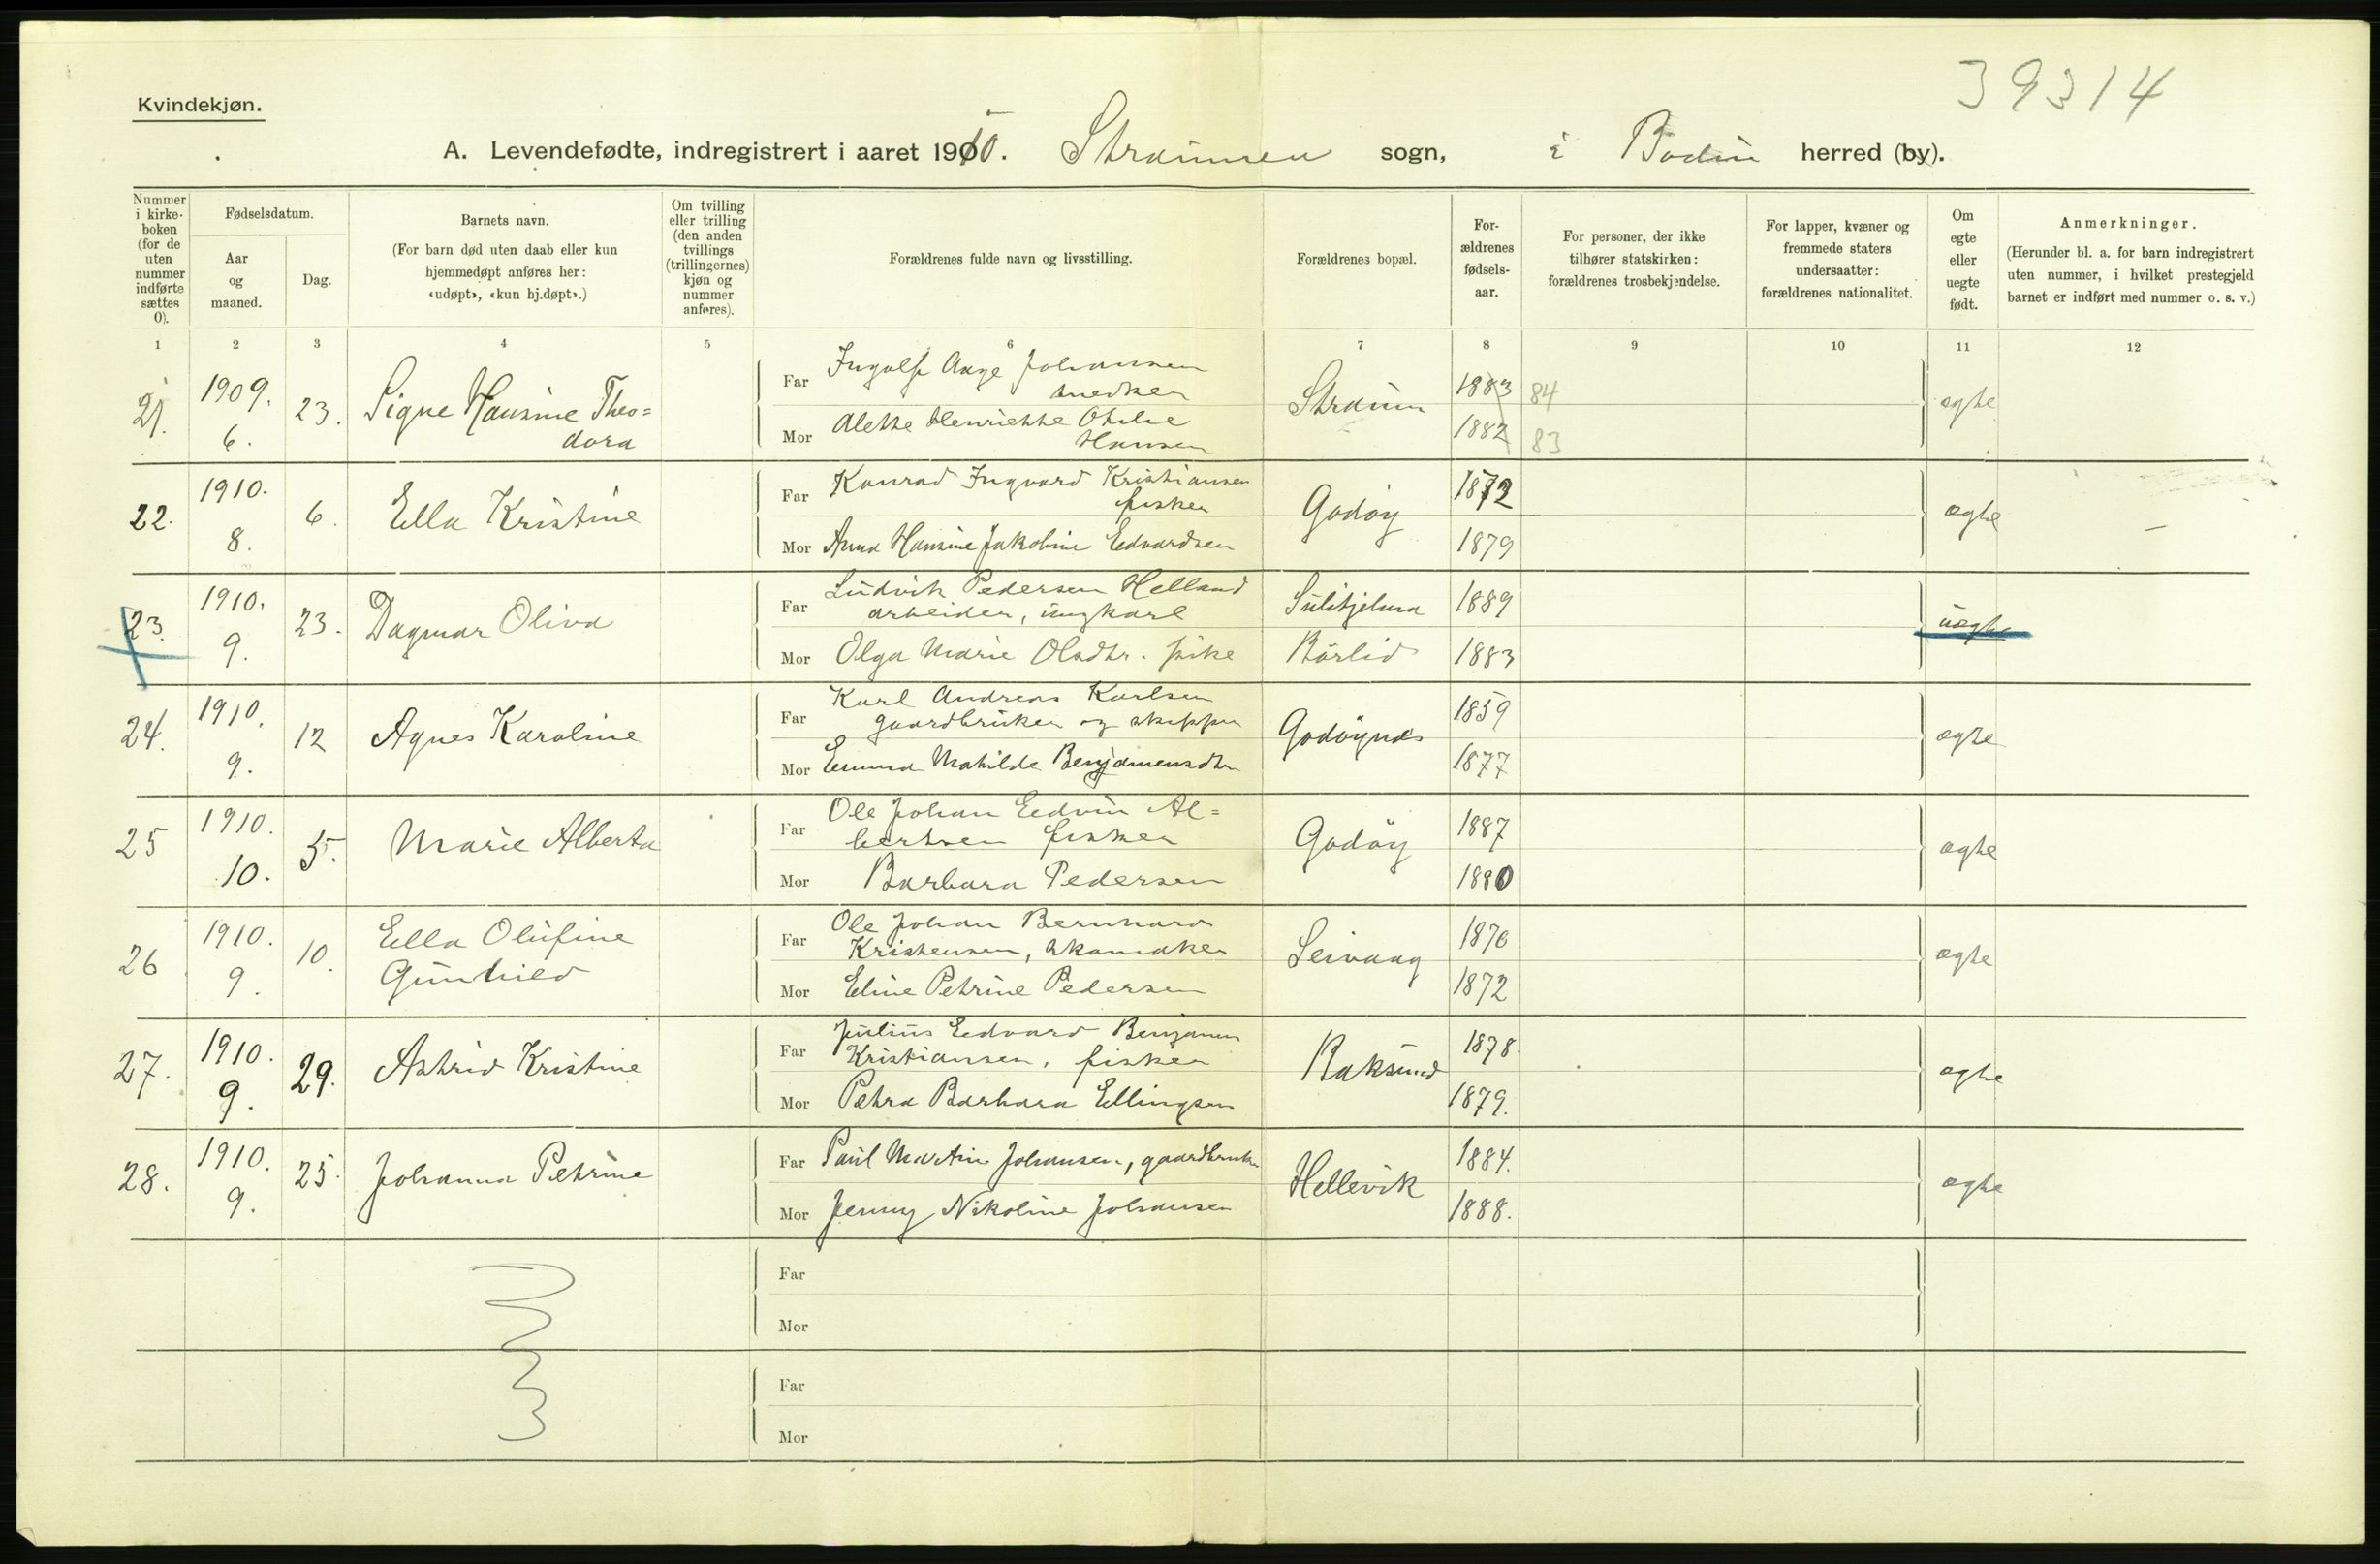 39314
Kvindekjøn.
A. Levendefødte, indregistrert i aaret 1910. Straumen sogn, i Bodin herred (by).
Nummer i kirkeboken (for de uten nummer indførte sættes 0).
Fødselsdatum.
Aar og maaned.
Dag.
Barnets navn.
(For barn død uten daab eller kun hjemmedøpt anføres her: «udøpt», «kun hj.døpt».)
Om tvilling eller trilling (den anden tvillings (trillingernes) kjøn og nummer anføres).
Forældrenes fulde navn og livsstilling.
Forældrenes bopæl.
Forældrenes fødselsaar.
For personer, der ikke tilhører statskirken: forældrenes trosbekjendelse.
For lapper, kvæner og fremmede staters undersaatter: forældrenes nationalitet.
Om egte eller uegte født.
Anmerkninger.
(Herunder bl. a. for barn indregistrert uten nummer, i hvilket prestegjeld barnet er indført med nummer o. s. v.)
1 2 3 4 5 6 7 8 9 10 11 12
21. 1909. 6. 23. Signe Hansine Theo=
dora
Far Ingolf Aage Johansen
snedker
Mor Alette Henriette Otelie
Hansen
Straum 1883 84
1882 83
ægte
22. 1910. 8. 6. Ella Kristine
Far Konrad Ingvard Kristiansen
fisker
Mor Anna Hansine Jakobine Edvardsen
Godøy 1872
1879
ægte
23. 1910. 9. 23. Dagmar Oliva
Far Ludvik Pedersen Helland
arbeider, ungkarl
Mor Olga Marie Olsdtr. pike
Sulitjelma 1889
Børlid 1883
uægte
24. 1910. 9. 12 Agnes Karoline
Far Karl Andreas Karlsen
gaardbruker og skipper
Mor Emma Mathilde Benjamensdtr
Godøynes 1859
1877
ægte
25 1910. 10. 5. Marie Alberta
Far Ole Johan Edvin Al=
bertsen fisker
Mor Barbara Pedersen
Godøy 1887
1880
ægte
26 1910. 9. 10. Ella Olufine
Gunhild
Far Ole Johan Bernhard
Kristensen, skomaker
Mor Eline Petrine Pedersen
Seivaag 1870
1872
ægte
27. 1910. 9. 29. Astrid Kristine
Far Julius Edvard Benjamin
Kristiansen, fisker
Mor Petra Barbara Ellingsen
Kaksund 1878.
1879.
ægte
28. 1910. 9. 25. Johanna Petrine
Far Paul Martin Johansen, gaardbruker
Mor Jenny Nikoline Johansen
Hellevik 1884.
1888.
ægte
Far
Mor
Far
Mor